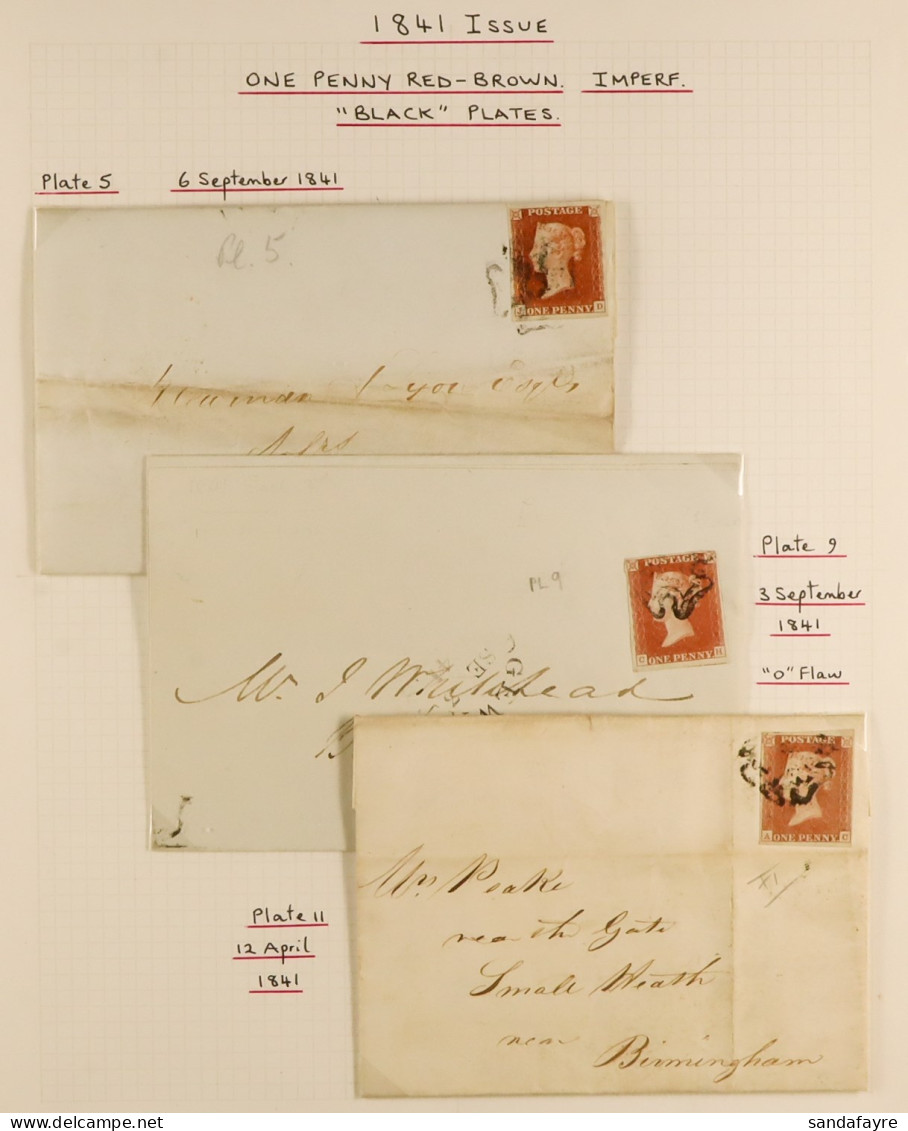 1841 ISSUE
ONE PENNY RED-BROWN. IMPERF.
"BLACK" PLATES.
Plate 5 6 September 1841
Pl. 5.
POSTAGE
D
ONE PENNY
Esqrs
Plate 9
3 September
1841
"O" Flaw
PL 9
POSTAGE
C H
ONE PENNY
Mr. J Whitehead
POSTAGE
A C
ONE PENNY
Plate 11
12 April
1841
Mrs Peake
near the Gate
Small Heath
near
Birmingham
sandafayre